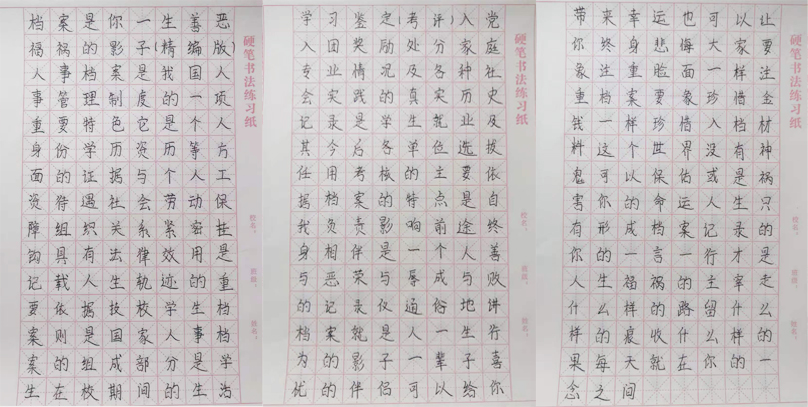 档案是你一生善恶
福祸的影子(精编版)
人事档案是我国人
事管理制度的一项
重要特色它是个人
身份学历资历等方
面的证据与个人工
资待遇社会劳动保
障组织关系紧密挂
钩具有法律效用是
记载人生轨迹的重
要依据技校学生档
案则是国家人事档
案的组成部分是学
生在校期间的生活
学习鉴定(考评)入党
入团奖励处分家庭
专业情况及各种社
会实践的真实历史
记录是学生就业及
其今后各单位选拔
任用考核的主要依
据档案的特点是自
我负责影响前途终
身相伴是一个人善
与恶荣与辱成与败
的记录仪通俗地讲
档案就是人一生行
为的影子一辈子喜
忧的伴侣可以给你
带来幸运也可以让
你终身悲悔大家要
象注重脸面一样注
重档案要象珍惜金
钱一样珍惜入档材
料这个世界没有神
可以保佑或是祸
害你的命运人生只
有形成档案记录的
你的一言一行才是
人生福祸的主宰走
什么样的路留什么
样的收什么样的
果每天就在你的一
念之间
硬笔书法练习纸
硬笔书法练习纸
硬笔书法练习纸